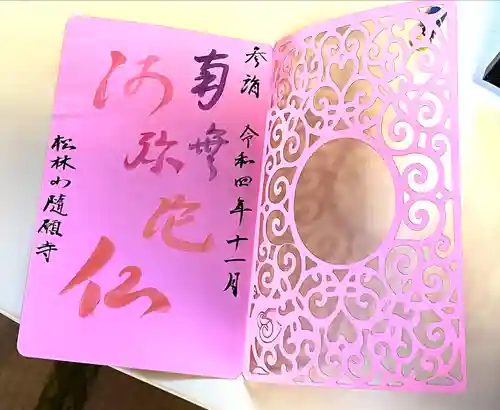 参詣 令和四年十一月
南無
阿弥陀
仏
松林山随願寺